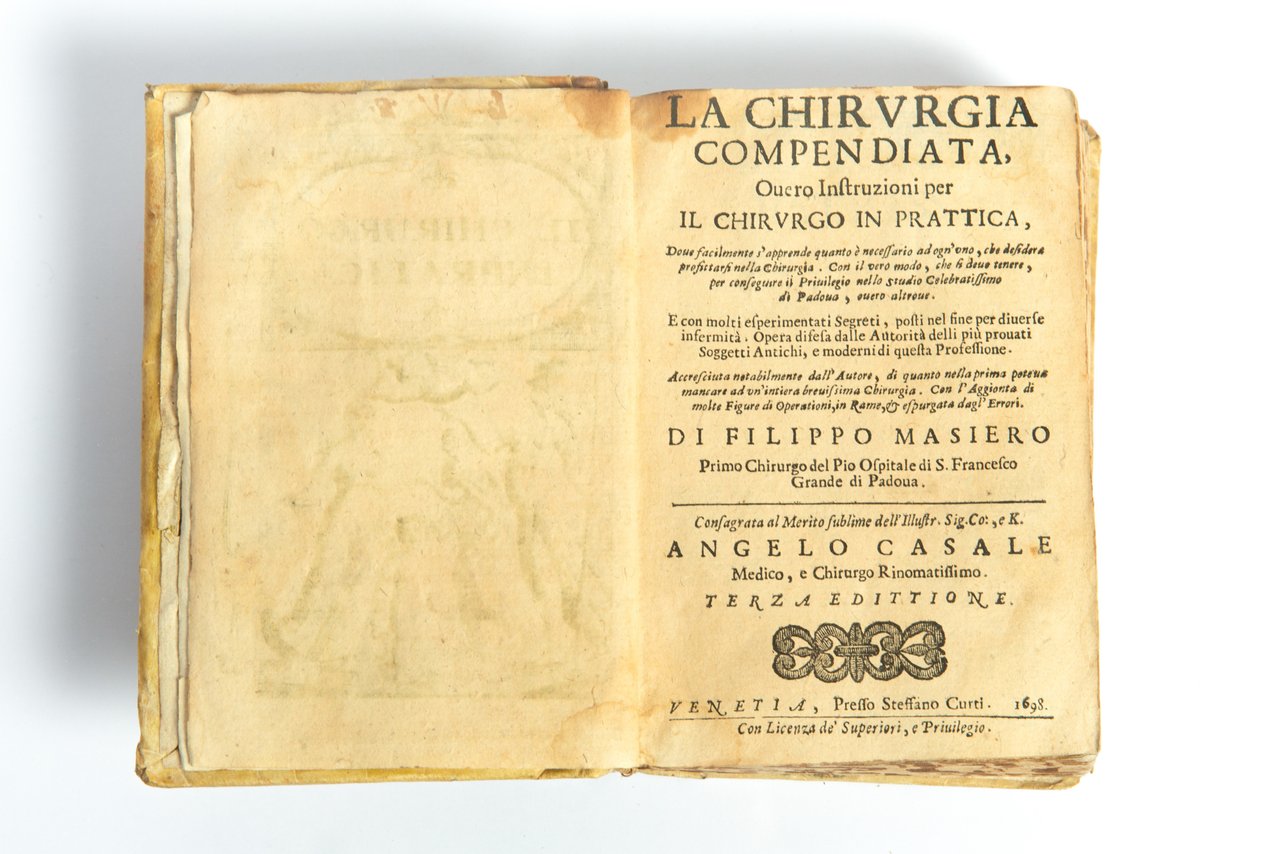 LA CHIRVRGIA
COMPENDIATA,
Ouero Inſtruzioni per
IL CHIRVRGO IN PRATTICA,
Doue facilmente s'apprende quanto è neceſſario ad ogn'vno, che deſidera
profittarſi nella Chirurgia. Con il vero modo, che ſi deue tenere,
per conſeguire il Priuilegio nello Studio Celebratiſſimo
di Padoua, ouero altroue.
E con molti eſperimentati Segreti, poſti nel fine per diuerſe
infermità. Opera difeſa dalle Autorità delli più prouati
Soggetti Antichi, e moderni di queſta Profeſſione.
Accreſciuta notabilmente dall'Autore, di quanto nella prima poteua
mancare ad vn'intiera breuiſsima Chirurgia. Con l'Aggionta di
molte Figure di Operationi, in Rame, & eſpurgata dagl'Errori.
DI FILIPPO MASIERO
Primo Chirurgo del Pio Oſpitale di S. Franceſco
Grande di Padoua.
Conſagrata al Merito ſublime dell'Illuſtr. Sig. Co:, e K.
ANGELO CASALE
Medico, e Chirurgo Rinomatiſſimo.
TERZA EDITTIONE.
VENETIA, Preſſo Steffano Curti. 1698.
Con Licenza de' Superiori, e Priuilegio.